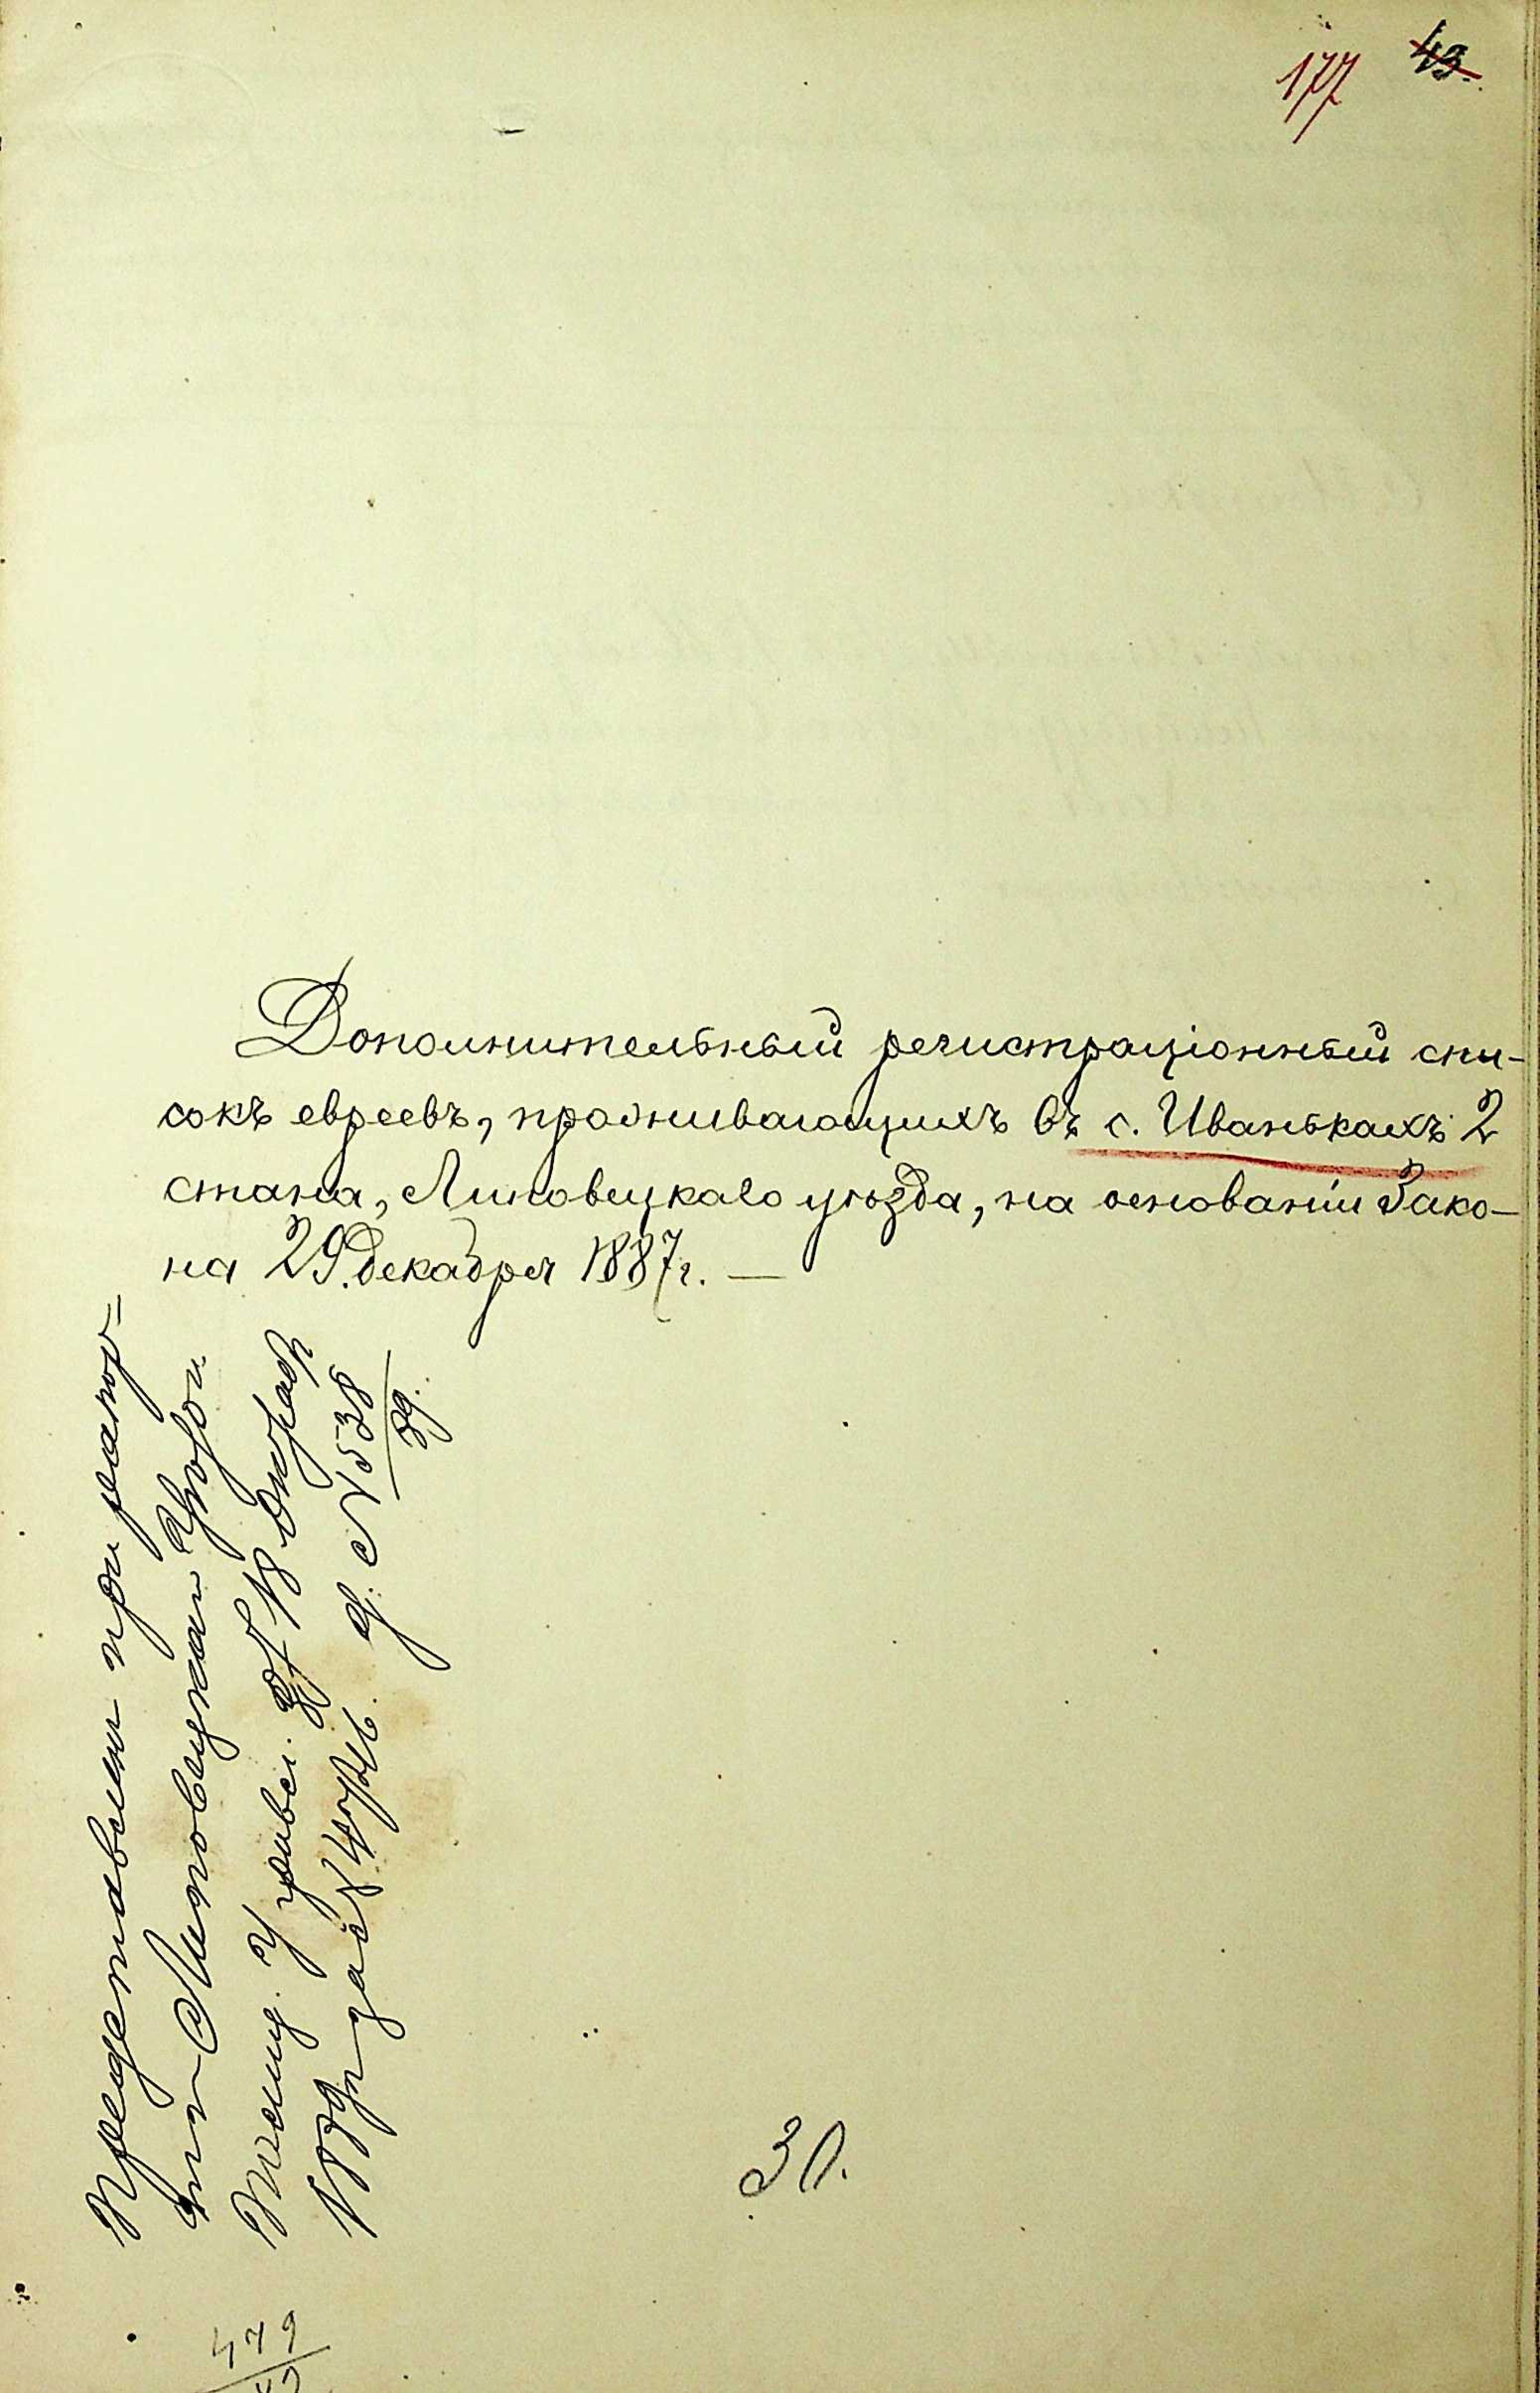 177 43.
Дополнительный регистраціонный спи-
сокъ евреевъ, проживающихъ въ с. Иванькахъ 2
стана, Липовецкаго уѣзда, на основаніи Зако-
на 29. декабря 1887 г. —
Представлен при рапор-
Липовецкаго
18 Октябр
г. с № 538
89.
30.
479